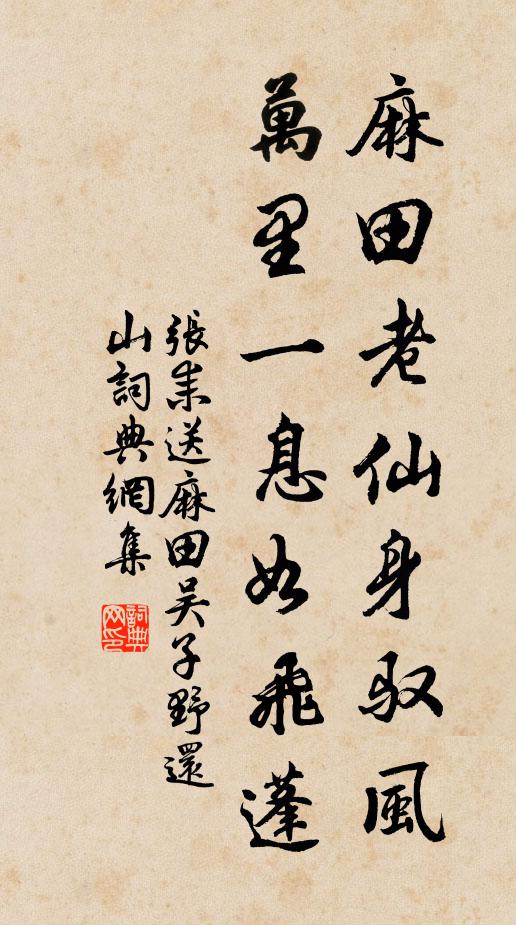 麻田老仙身馭風
萬里一息如飛蓬
張耒送麻田吳子野還
山詞典網集
詞典
网印